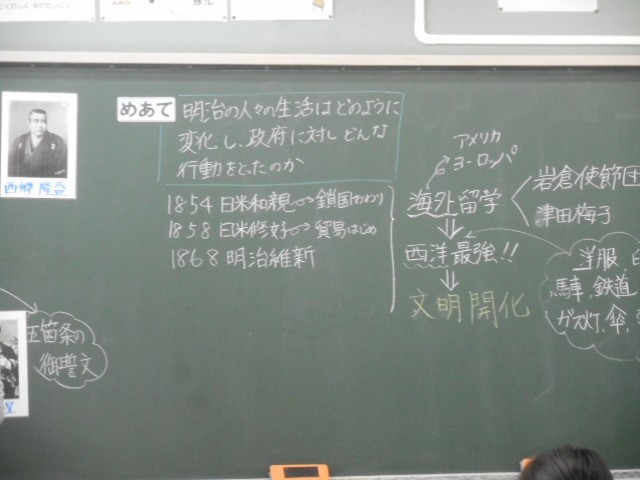 西郷隆盛
めあて 明治の人々の生活はどのように
変化し、政府に対しどんな
行動をとったのか
1854 日米和親→鎖国おわり
1858 日米修好→貿易はじめ
1868 明治維新
アメリカ
ヨーロッパ
海外留学
岩倉使節団
津田梅子
西洋最強!!
文明開化
洋服、
馬車、鉄道
ガス灯、傘、
五箇条の
御誓文